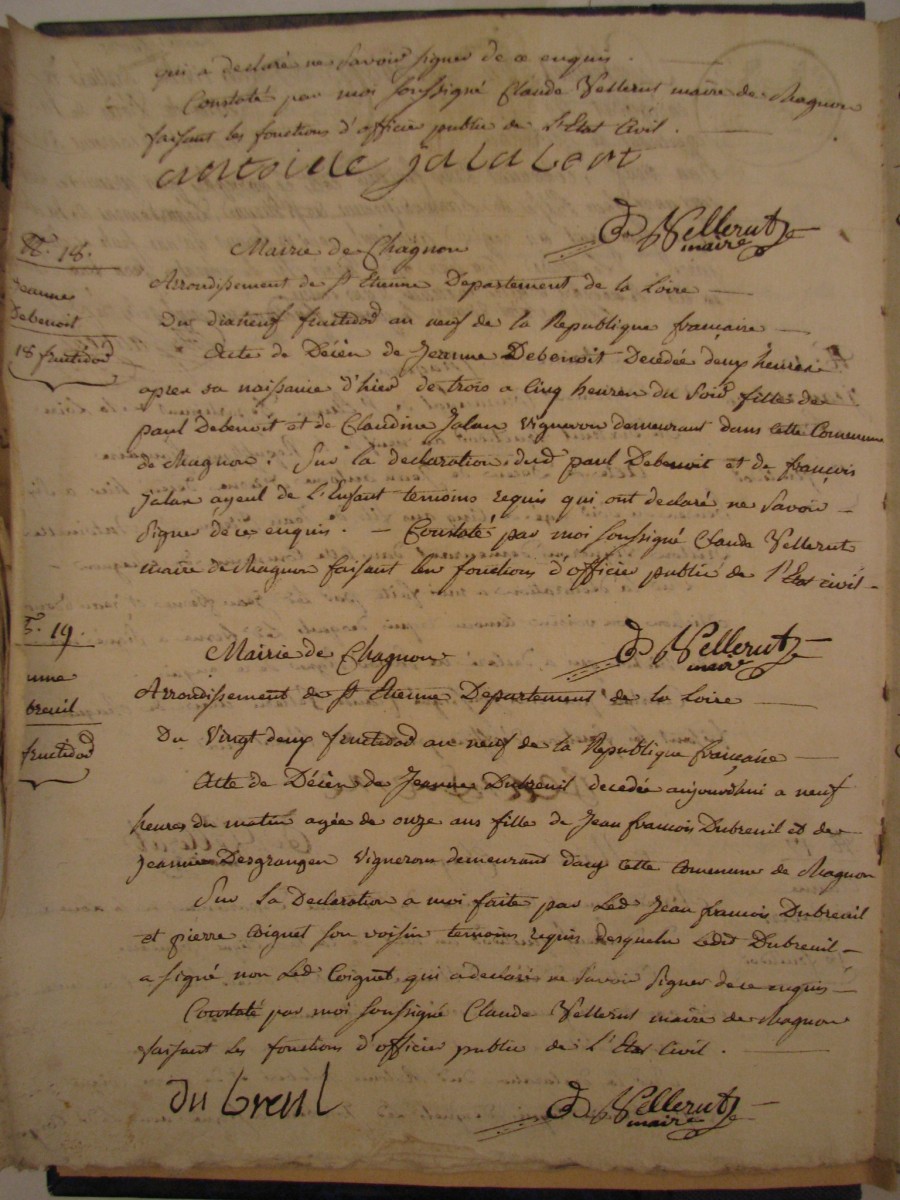 qui a declaré ne Savoir signer de ce enquis.
Constaté par moi soussigné Claude Vellerut maire de Chagnon
faisant les fonctions d'officier public de l'Etat Civil.
antoine jalabert
Vellerut
maire
N°. 18.
Mairie de Chagnon
Arrondissement de St Etienne Departement de la Loire
Jeanne
Debenoit
18 fructidor
Du dixneuf fructidor an neuf de la Republique francaise
Acte de Décès de Jeanne Debenoit Decedée deux heures
apres sa naissance d'hier de trois a Cinq heures du Soir fille de
paul Debenoit et de Claudine Jalas Vigneron demeurant dans cette Commune
de Chagnon. Sur la declaration dud paul Debenoit et de françois
jalas ayeul de l'Enfant temoins requis qui ont declaré ne Savoir
Signer de ce enquis. - Constaté par moi soussigné Claude Vellerut
maire de Chagnon faisant les fonctions d'officier public de l'Etat civil
Vellerut
maire
19.
Mairie de Chagnon
Arrondissement de St Etienne Departement de la Loire
nne
breuil
fructidor
Du Vingt deux fructidor an neuf de la Republique française
Acte de Décès de Jeanne Dubreuil decedée aujourdhui a neuf
heures du matin agée de onze ans fille de Jean francois Dubreuil et de
Jeanne Desgranges Vignerons demeurant dans cette commune de Chagnon
Sur la Declaration a moi faite par Led Jean francois Dubreuil
et pierre Coignet son voisin temoins requis desquels Ledit Dubreuil
a signé non Led Coignet qui a declaré ne Savoir Signer de ce enquis
Constaté par moi soussigné Claude Vellerut maire de Chagnon
faisant les fonctions d'officier public de l'Etat Civil.
du breul
Vellerut
maire